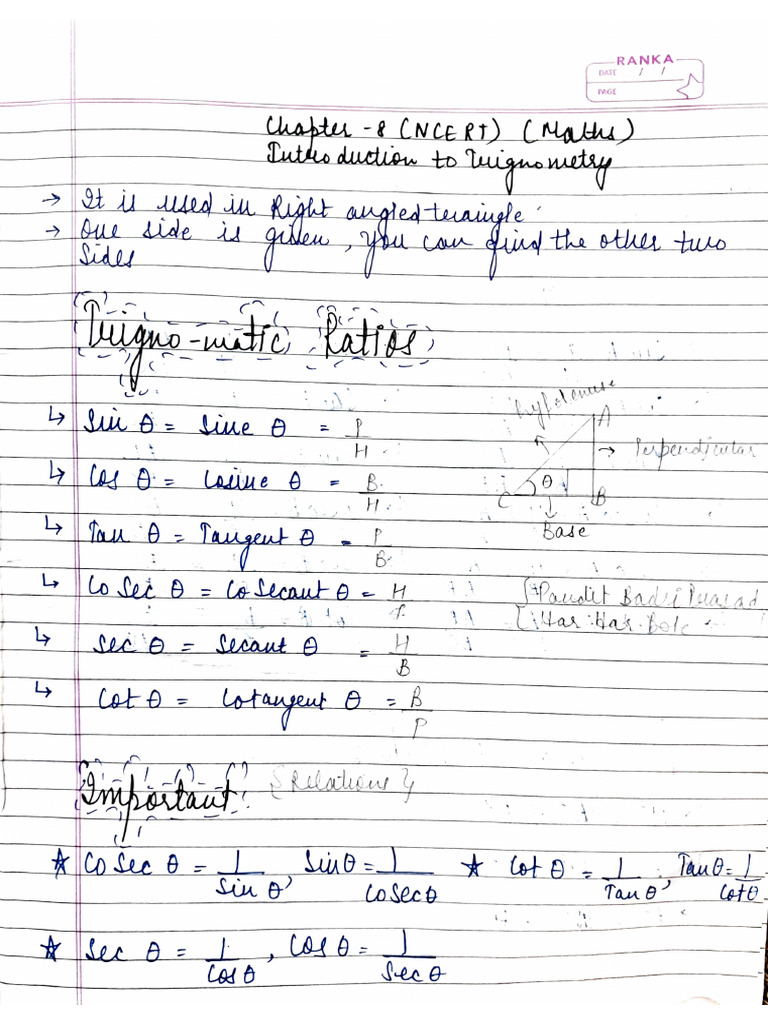 RANKA
DATE / /
PAGE
Chapter -8 (NCERT) (Maths)
Introduction to Trignometry
→ It is used in Right angled teraingle.
→ One side is given, you can find the other two
sides
Trigno-matic Ratios
↳ Sin θ = Sine θ = P/H
↳ Cos θ = Cosine θ = B/H
↳ Tan θ = Tangent θ = P/B
↳ CoSec θ = CoSecant θ = H/P
↳ Sec θ = Secant θ = H/B
↳ Cot θ = Cotangent θ = B/P
hypotenuse
A
→ Perpendicular
C θ B
Base
Pandit Badri Prasad
Har Har Bole
Important {Relations}
☆ CoSec θ = 1/Sin θ, Sinθ = 1/CoSecθ ☆ Cot θ = 1/Tan θ, Tanθ = 1/Cotθ
☆ Sec θ = 1/Cosθ, Cosθ = 1/Secθ